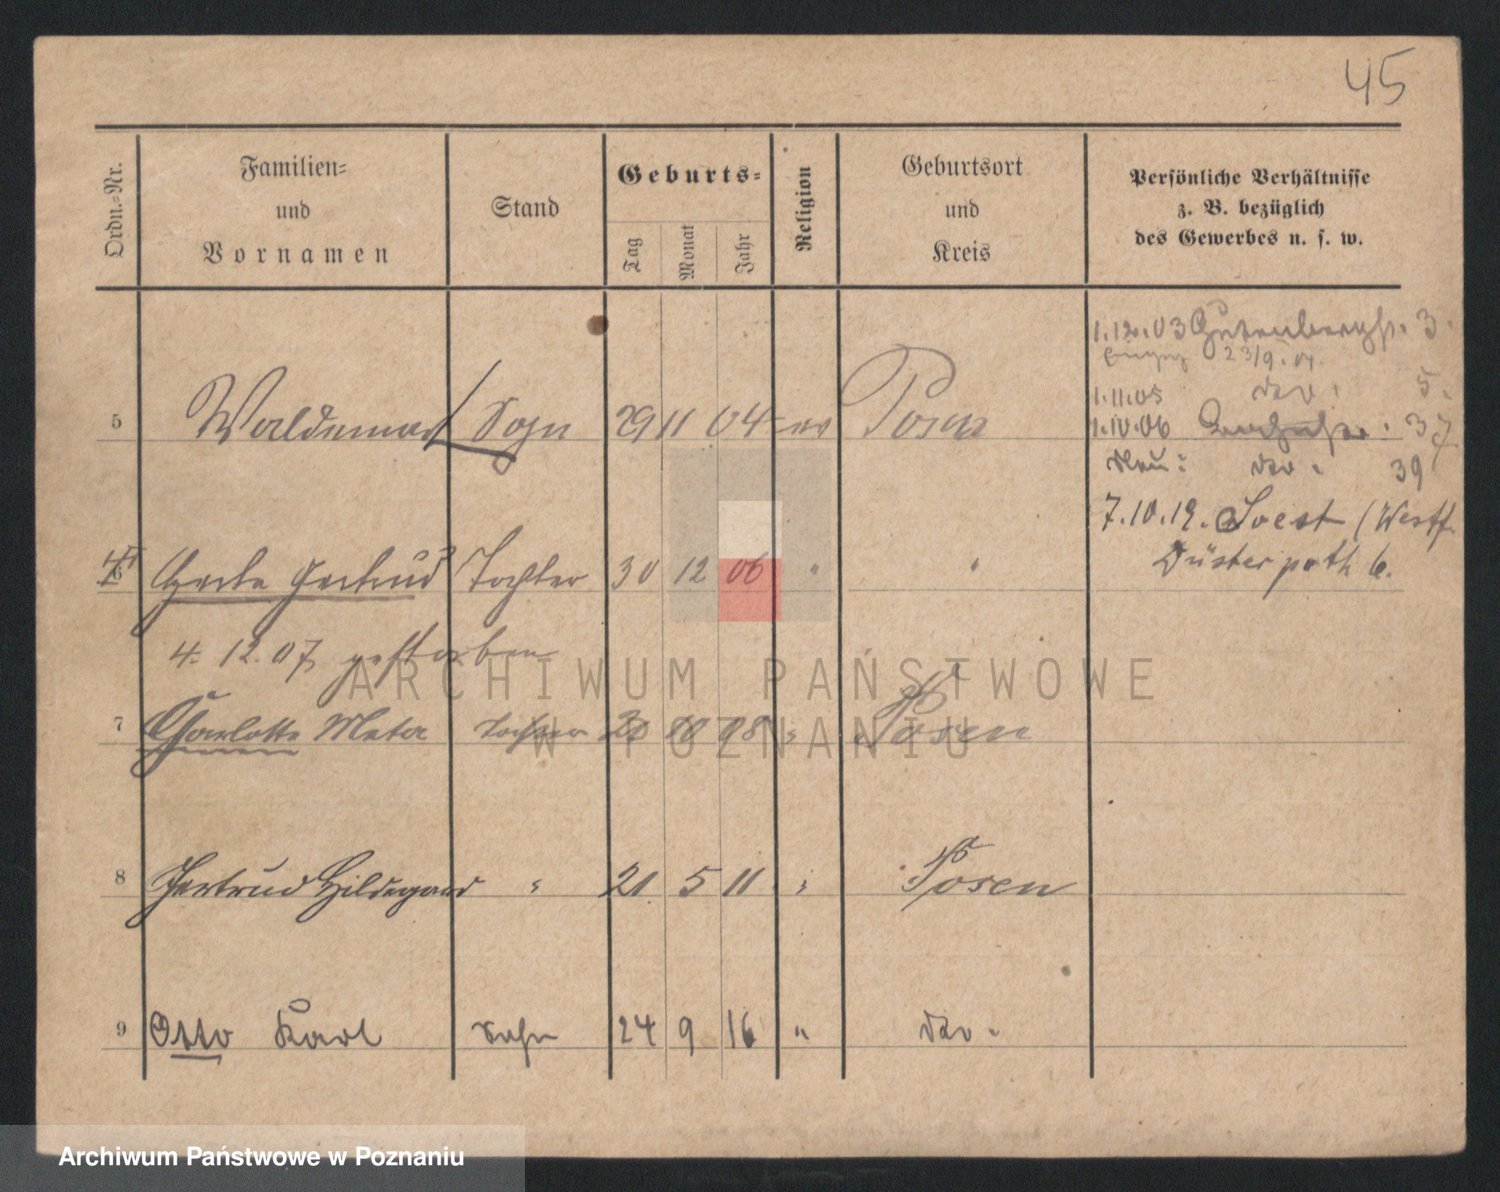 45
Ordn.-Nr.
Familien-
und
Vornamen
Stand
Geburts-
Tag
Monat
Jahr
Religion
Geburtsort
und
Kreis
Persönliche Verhältnisse
z. B. bezüglich
des Gewerbes u. s. w.
1.12.03 Gutenbergstr. 3.
23/9.04.
1.11.05 dto. 5.
1.10.06 37
Neu: dto. 39
7.10.19. Soest (Westf.
Düsterpoth 6.
5 Waldemar Sohn 29 11 04 ev Posen
6 Herta Gertrud Tochter 30 12 06 " "
4.12.07 gestorben
7 Charlotte Meta Tochter 20 10 08 " Posen
8 Gertrud Hildegard " 21 5 11 " Posen
9 Otto Karl Sohn 24 9 16 " dto.
ARCHIWUM PAŃSTWOWE
W POZNANIU
Archiwum Państwowe w Poznaniu